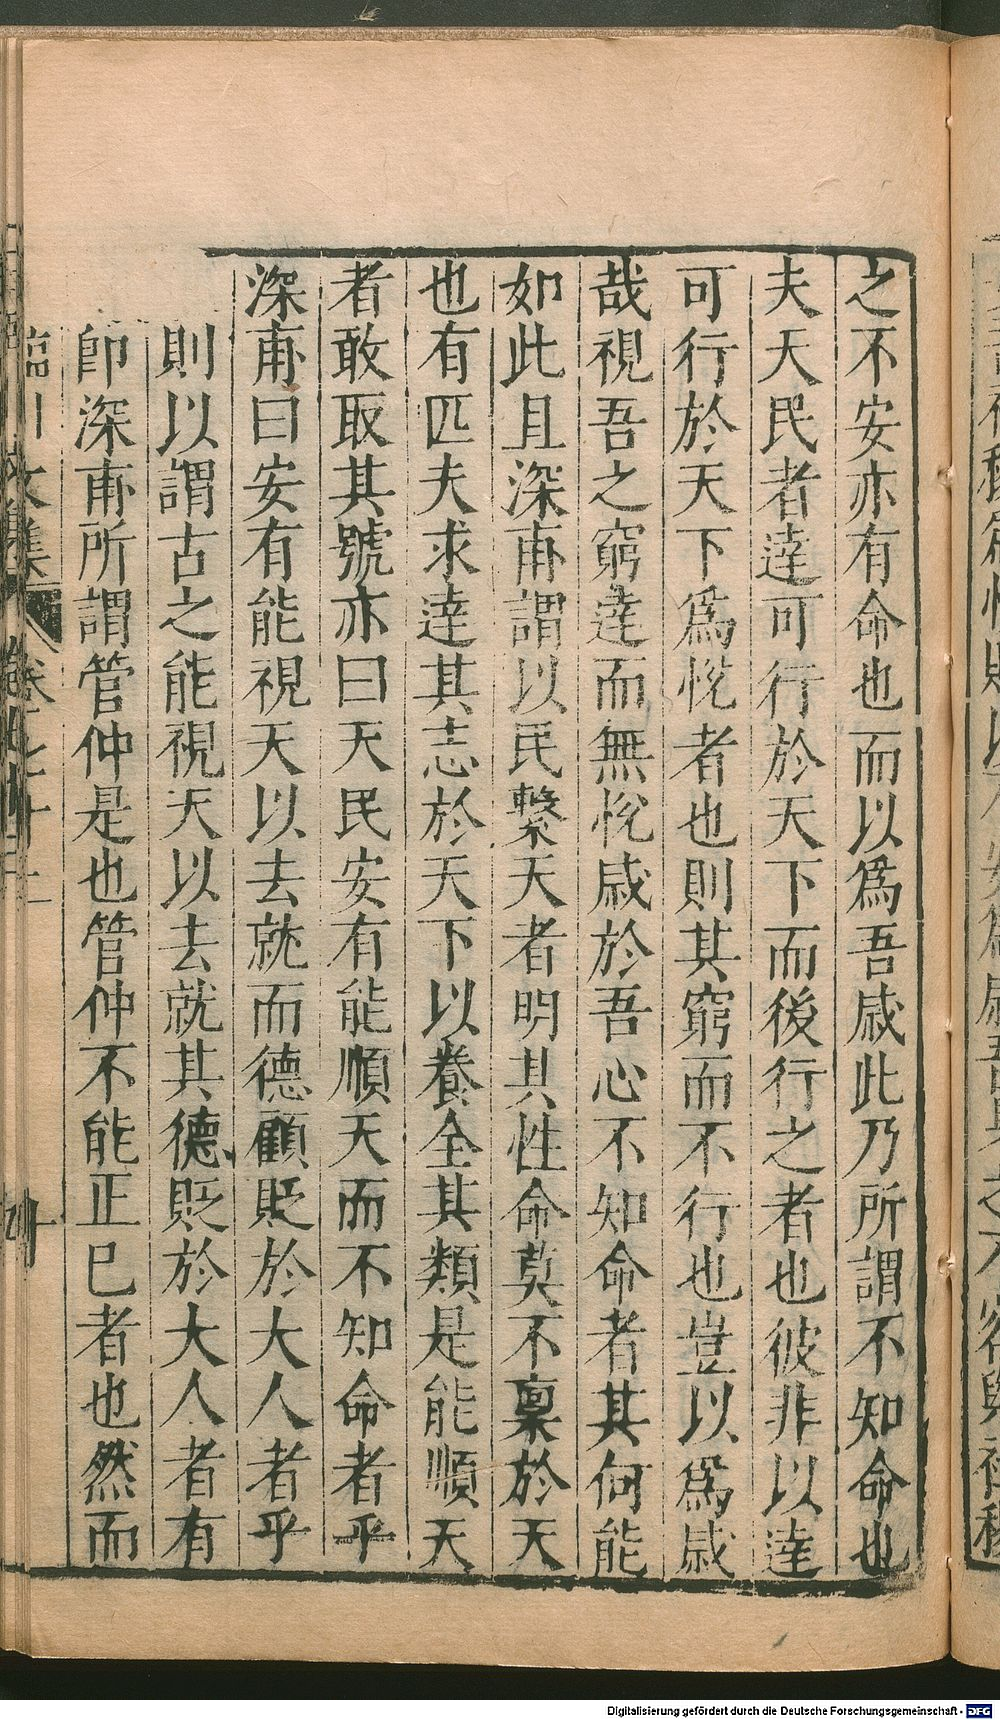 之不安亦有命也而以爲吾戚此乃所謂不知命也
夫天民者達可行於天下而後行之者也彼非以達
可行於天下爲悅者也則其窮而不行也豈以爲戚
哉視吾之窮達而無悅戚於吾心不知命者其何能
如此且深甫謂以民繫天者明其性命莫不稟於天
也有匹夫求達其志於天下以養全其類是能順天
者敢取其號亦曰天民安有能順天而不知命者乎
深甫曰安有能視天以去就而德顧貶於大人者乎
則以謂古之能視天以去就其德貶於大人者有
卽深甫所謂管仲是也管仲不能正己者也然而
臨川文集 卷七十二
Digitalisierung gefördert durch die Deutsche Forschungsgemeinschaft - DFG